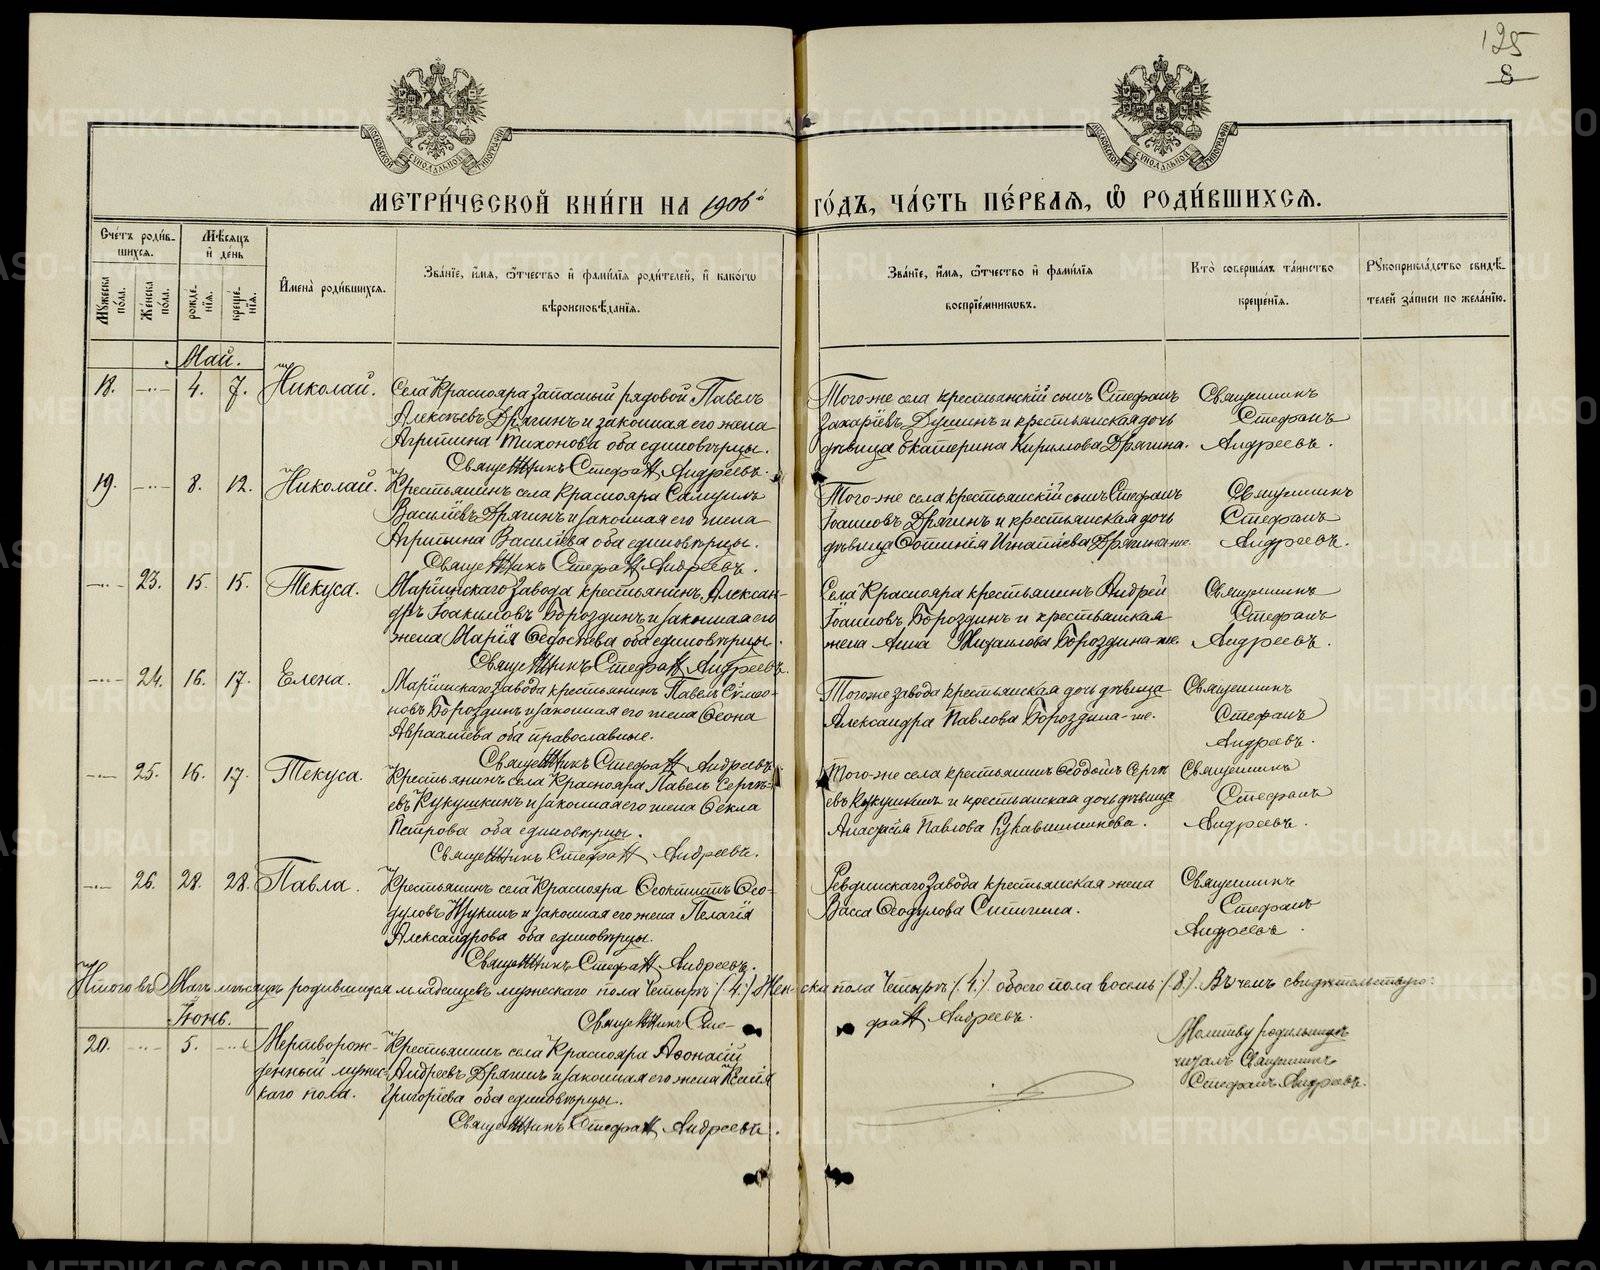 125
8
МОСКОВСКОЙ СѴНОДАЛЬНОЙ ТИПОГРАФІИ
МОСКОВСКОЙ СѴНОДАЛЬНОЙ ТИПОГРАФІИ
МЕТРИ́ЧЕСКОЙ КНИ́ГИ НА 1906й ГО́ДЪ, ЧА́СТЬ ПЕ́РВАЯ, Ѡ РОДИ́ВШИХСЯ.
Сче́тъ роди́в-
шихся.
Мѣ́сяцъ
и де́нь
Мꙋжеска по́ла.
Же́нска по́ла.
рожде́нїя.
креще́нїя.
И҆мена̀ роди́вшихся.
Зва́нїе, и҆́мя, ѻ҆́тчество и҆ фами́лїя роди́телей, и҆ како́гѡ
вѣроисповѣ́данїя.
Зва́нїе, и҆́мя, ѻ҆́тчество и҆ фами́лїя
воспрїе́мникѡвъ.
Кто̀ соверша́лъ та́инство
креще́нїя.
Рꙋкоприкла́дство свидѣ́-
телей за́писи по жела́нїю.
Май.
18. 4. 7. Николай. Села Краснояра запасный рядовой Павелъ
Алексѣевъ Дрягинъ и законная его жена
Агрипина Тихонова оба единовѣрцы.
Священникъ Стефанъ Андреевъ.
Того-же села крестьянскій сынъ Стефанъ
Захаріевъ и крестьянская дочь
дѣвица Екатерина Кириллова Дрягина.
Священникъ
Стефанъ
Андреевъ.
19. 8. 12. Николай. Крестьянинъ села Краснояра Самуилъ
Васильевъ Дрягинъ и законная его жена
Агрипина Васильева оба единовѣрцы.
Священникъ Стефанъ Андреевъ.
Того-же села крестьянскій сынъ Стефанъ
Іоанновъ Дрягинъ и крестьянская дочь
дѣвица Игнатіева Дрягина-же.
Священникъ
Стефанъ
Андреевъ.
23. 15. 15. Текуса. Маріинскаго завода крестьянинъ Алексан-
дръ Іоакимовъ Бороздинъ и законная его
жена Марія Ѳедосѣева оба единовѣрцы.
Священникъ Стефанъ Андреевъ.
Села Краснояра крестьянинъ Андрей
Іоанновъ Бороздинъ и крестьянская
жена Анна Михаилова Бороздина-же.
Священникъ
Стефанъ
Андреевъ.
24. 16. 17. Елена. Маріинскаго завода крестьянинъ Павелъ Сѵмео-
новъ Бороздинъ и законная его жена Ѳеона
Авраамiева оба православные.
Священникъ Стефанъ Андреевъ.
Того-же завода крестьянская дочь дѣвица
Александра Павлова Бороздина-же.
Священникъ
Стефанъ
Андреевъ.
25. 16. 17. Текуса. Крестьянинъ села Краснояра Павелъ Сергѣ-
евъ Кукушкинъ и законная его жена Ѳекла
Петрова оба единовѣрцы.
Священникъ Стефанъ Андреевъ.
Того-же села крестьянинъ Сергѣ-
евъ Кукушкинъ и крестьянская дочь дѣвица
Анастасія Павлова
Священникъ
Стефанъ
Андреевъ.
26. 28. 28. Павла. Крестьянинъ села Краснояра Ѳеоктистъ Ѳео-
дуловъ Щукинъ и законная его жена Пелагія
Александрова оба единовѣрцы.
Священникъ Стефанъ Андреевъ.
Ревдинскаго завода крестьянская жена
Васса Ѳеодулова
Священникъ
Стефанъ
Андреевъ.
Итого въ Маѣ мѣсяцѣ родившихся младенцевъ мужескаго пола четыре (4.) Жен-ска пола четыре (4.) обоего пола восемь (8.). Въ чемъ свидѣтельствую:
Священникъ Сте-фанъ Андреевъ.
Іюнь.
20. 5. Мертворож-
денный мужес-
каго пола.
Крестьянинъ села Краснояра Аѳонасій
Андреевъ Дрягинъ и законная его жена Ксенія
Григоріева оба единовѣрцы.
Священникъ Стефанъ Андреевъ.
Молитву родильницѣ
читалъ Священникъ
Стефанъ Андреевъ.
METRIKI.GASO-URAL.RU